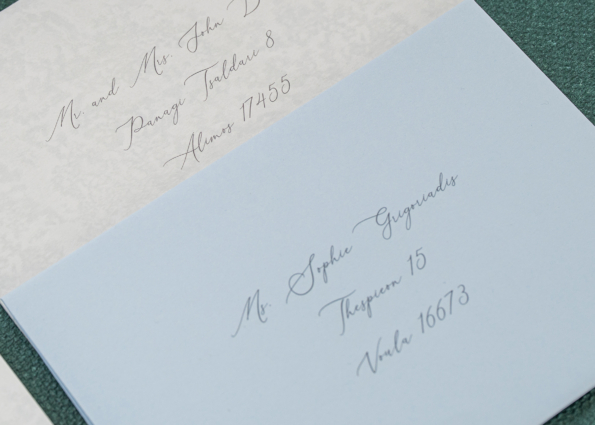 Mr. and Mrs. John D
Panagi Tsaldari 8
Alimos 17455
Ms. Sophie Grigoriadis
Thespieon 15
Voula 16673